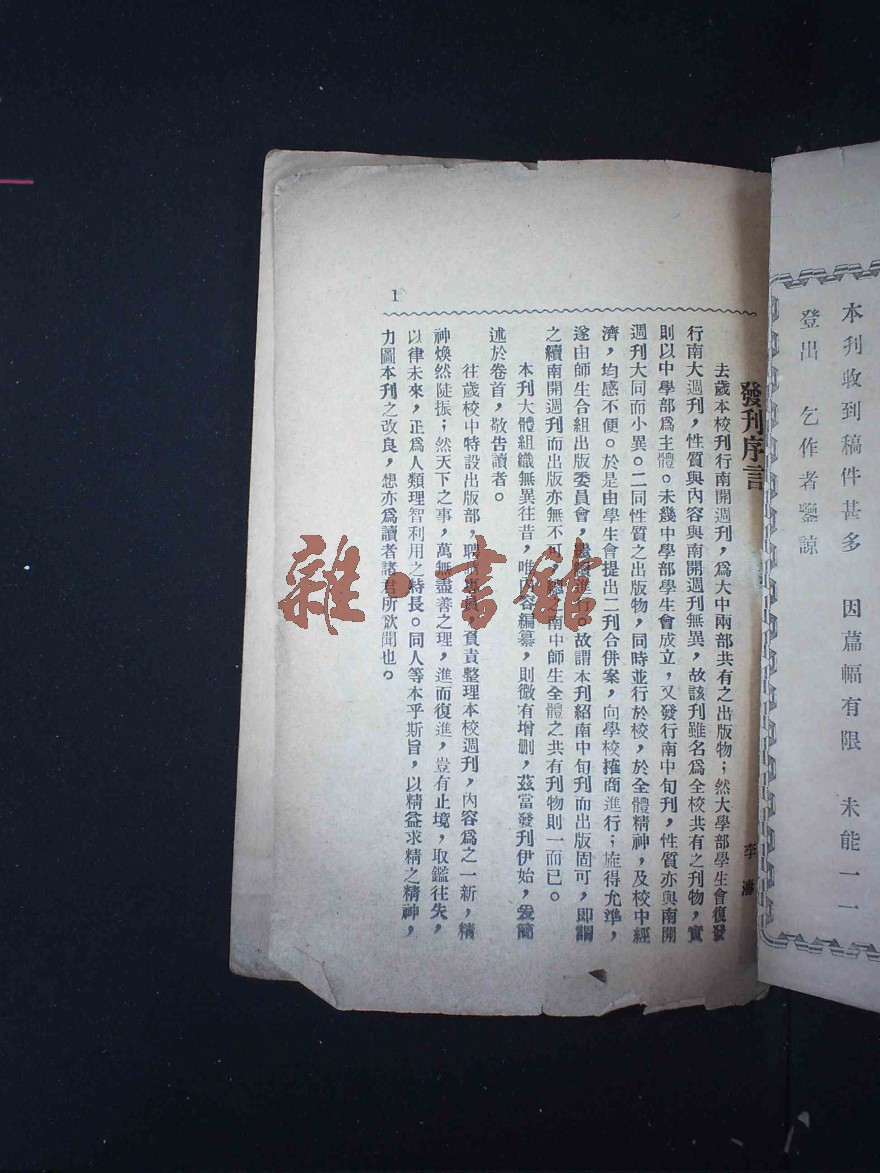 本刊收到稿件甚多 因篇幅有限 未能一一
登出 乞作者鑒諒
發刊序言
李
去歲本校刊行南開週刊，爲大中兩部共有之出版物；然大學部學生會復發
行南大週刊，性質與內容與南開週刊無異，故該刊雖名爲全校共有之刊物，實
則以中學部爲主體。未幾中學部學生會成立，又發行南中旬刊，性質亦與南開
週刊大同而小異。二同性質之出版物，同時並行於校，於全體精神，及校中經
濟，均感不便。於是由學生會提出二刊合併案，向學校搉商進行；旋得允準，
遂由師生合組出版委員會，進行。故謂本刊紹南中旬刊而出版固可，即謂
之續南開週刊而出版亦無不可，之南中師生全體之共有刊物則一而已。
本刊大體組織無異往昔，唯內容編纂，則微有增刪，茲當發刊伊始，爰簡
述於卷首，敬告讀者。
往歲校中特設出版部，聘，負責整理本校週刊，內容爲之一新，精
神煥然陡振；然天下之事，萬無盡善之理，進而復進，豈有止境，取鑑往失，
以律未來，正爲人類理智利用之特長。同人等本乎斯旨，以精益求精之精神，
力圖本刊之改良，想亦爲讀者諸君所欲聞也。
1
雜·書館